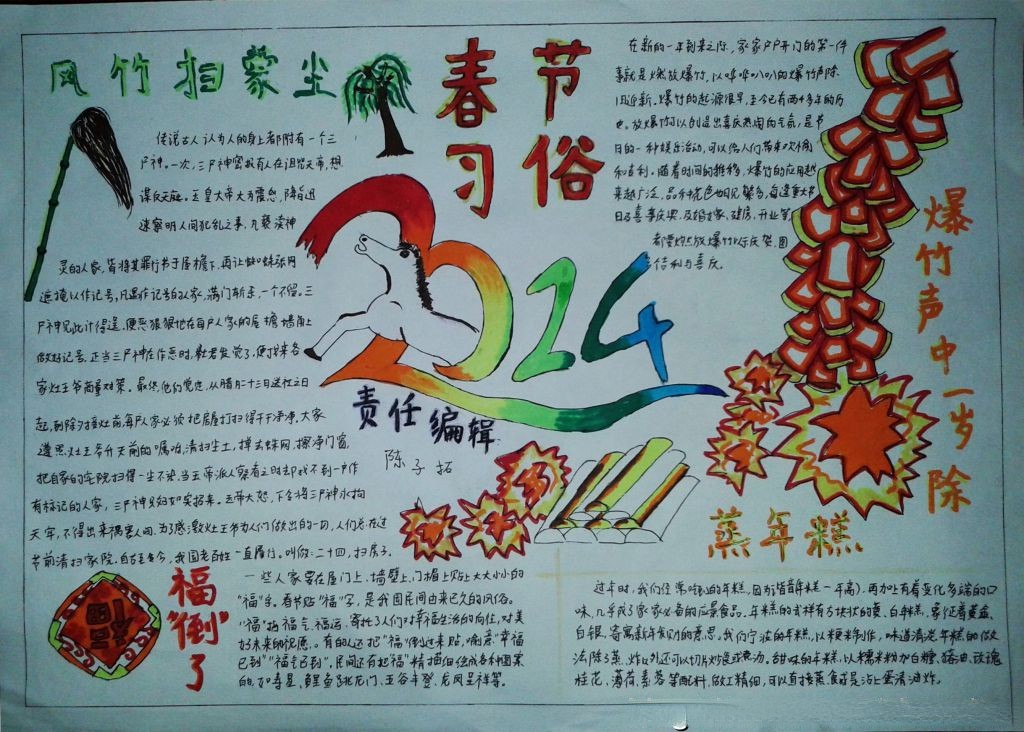 春节
习俗
2014
责任编辑
陈子拓
风竹扫蒙尘
传说古人认为人的身上都附有一个三
尸神。一次，三尸神密报有人在诅咒天帝，想
谋反天庭。玉皇大帝大为震怒，降旨迅
速察明人间犯乱之事，凡亵渎神
灵的人家，皆将其罪行书于屋檐下，再让蜘蛛张网
遮掩以作记号，凡是作记号的人家，满门斩杀，一个不留。三
尸神见此计得逞，便恶狠狠地在每户人家的屋檐墙角上
做好记号。正当三尸神在作恶时，灶君发觉了，便找来各
家灶王爷商量对策。最终，他们觉定，从腊月二十三日送灶之日
起，到除夕接灶前，每户人家必须把屋打扫得干干净净，大家
遵照灶王爷升天前的嘱咐，清扫尘土，掸去蛛网，擦净门窗，
把自家的宅院扫得一尘不染。当玉帝派人察看之时却找不到一户作
有标记的人家，三尸神只如实招来。玉帝大怒，下令将三尸神永拘
天牢，不得出来祸害人间。为了感激灶王爷为人们做出的一切，人们总在这
节前清扫家院。自古至今，我国老百姓一直履行。叫做：二十四，扫房子。
在新的一年到来之际，家家户户开门的第一件
事就是燃放爆竹，以哔哔叭叭的爆竹声除
旧迎新。爆竹的起源很早，至今已有两千多年的历
史。放爆竹可以创造出喜庆热闹的气氛，是节
日的一种娱乐活动，可以给人们带来欢愉
和吉利。随着时间的推移，爆竹的应用越
来越广泛，品种花色也日见繁多，每逢重大节
日及喜事庆典，及婚嫁、建房、开业等
都要燃放爆竹以示庆贺，图
吉利与喜庆。
爆竹声中一岁除
福
"倒"
了
福
一些人家要在屋门上、墙壁上、门楣上贴上大大小小的
"福"字。春节贴"福"字，是我国民间由来已久的风俗。
"福"指福气、福运，寄托了人们对幸福生活的向往，对美
好未来的祝愿。有的还把"福"倒过来贴，寓意"幸福
已到""福气已到"，民间还有把"福"精描细绘成各种图案
的，如寿星、鲤鱼跳龙门、五谷丰登、龙凤呈祥等。
蒸年糕
过年时，我们经常吃到的年糕，因为谐音年糕一年高，再加上有着变化多端的口
味，几乎成了家家必备的应景食品。年糕的式样有方块状的黄、白年糕，象征着黄金、
白银，寄寓新年发财的意思。我们宁波的年糕，以粳米制作，味道清淡。年糕的做
法除了蒸、炸以外还可以切片炒或煮汤。甜味的年糕，以糯米粉加白糖、猪油、玫瑰、
桂花、薄荷、素蓉等配料，做工精细，可以直接蒸食或是沾上蛋清油炸。